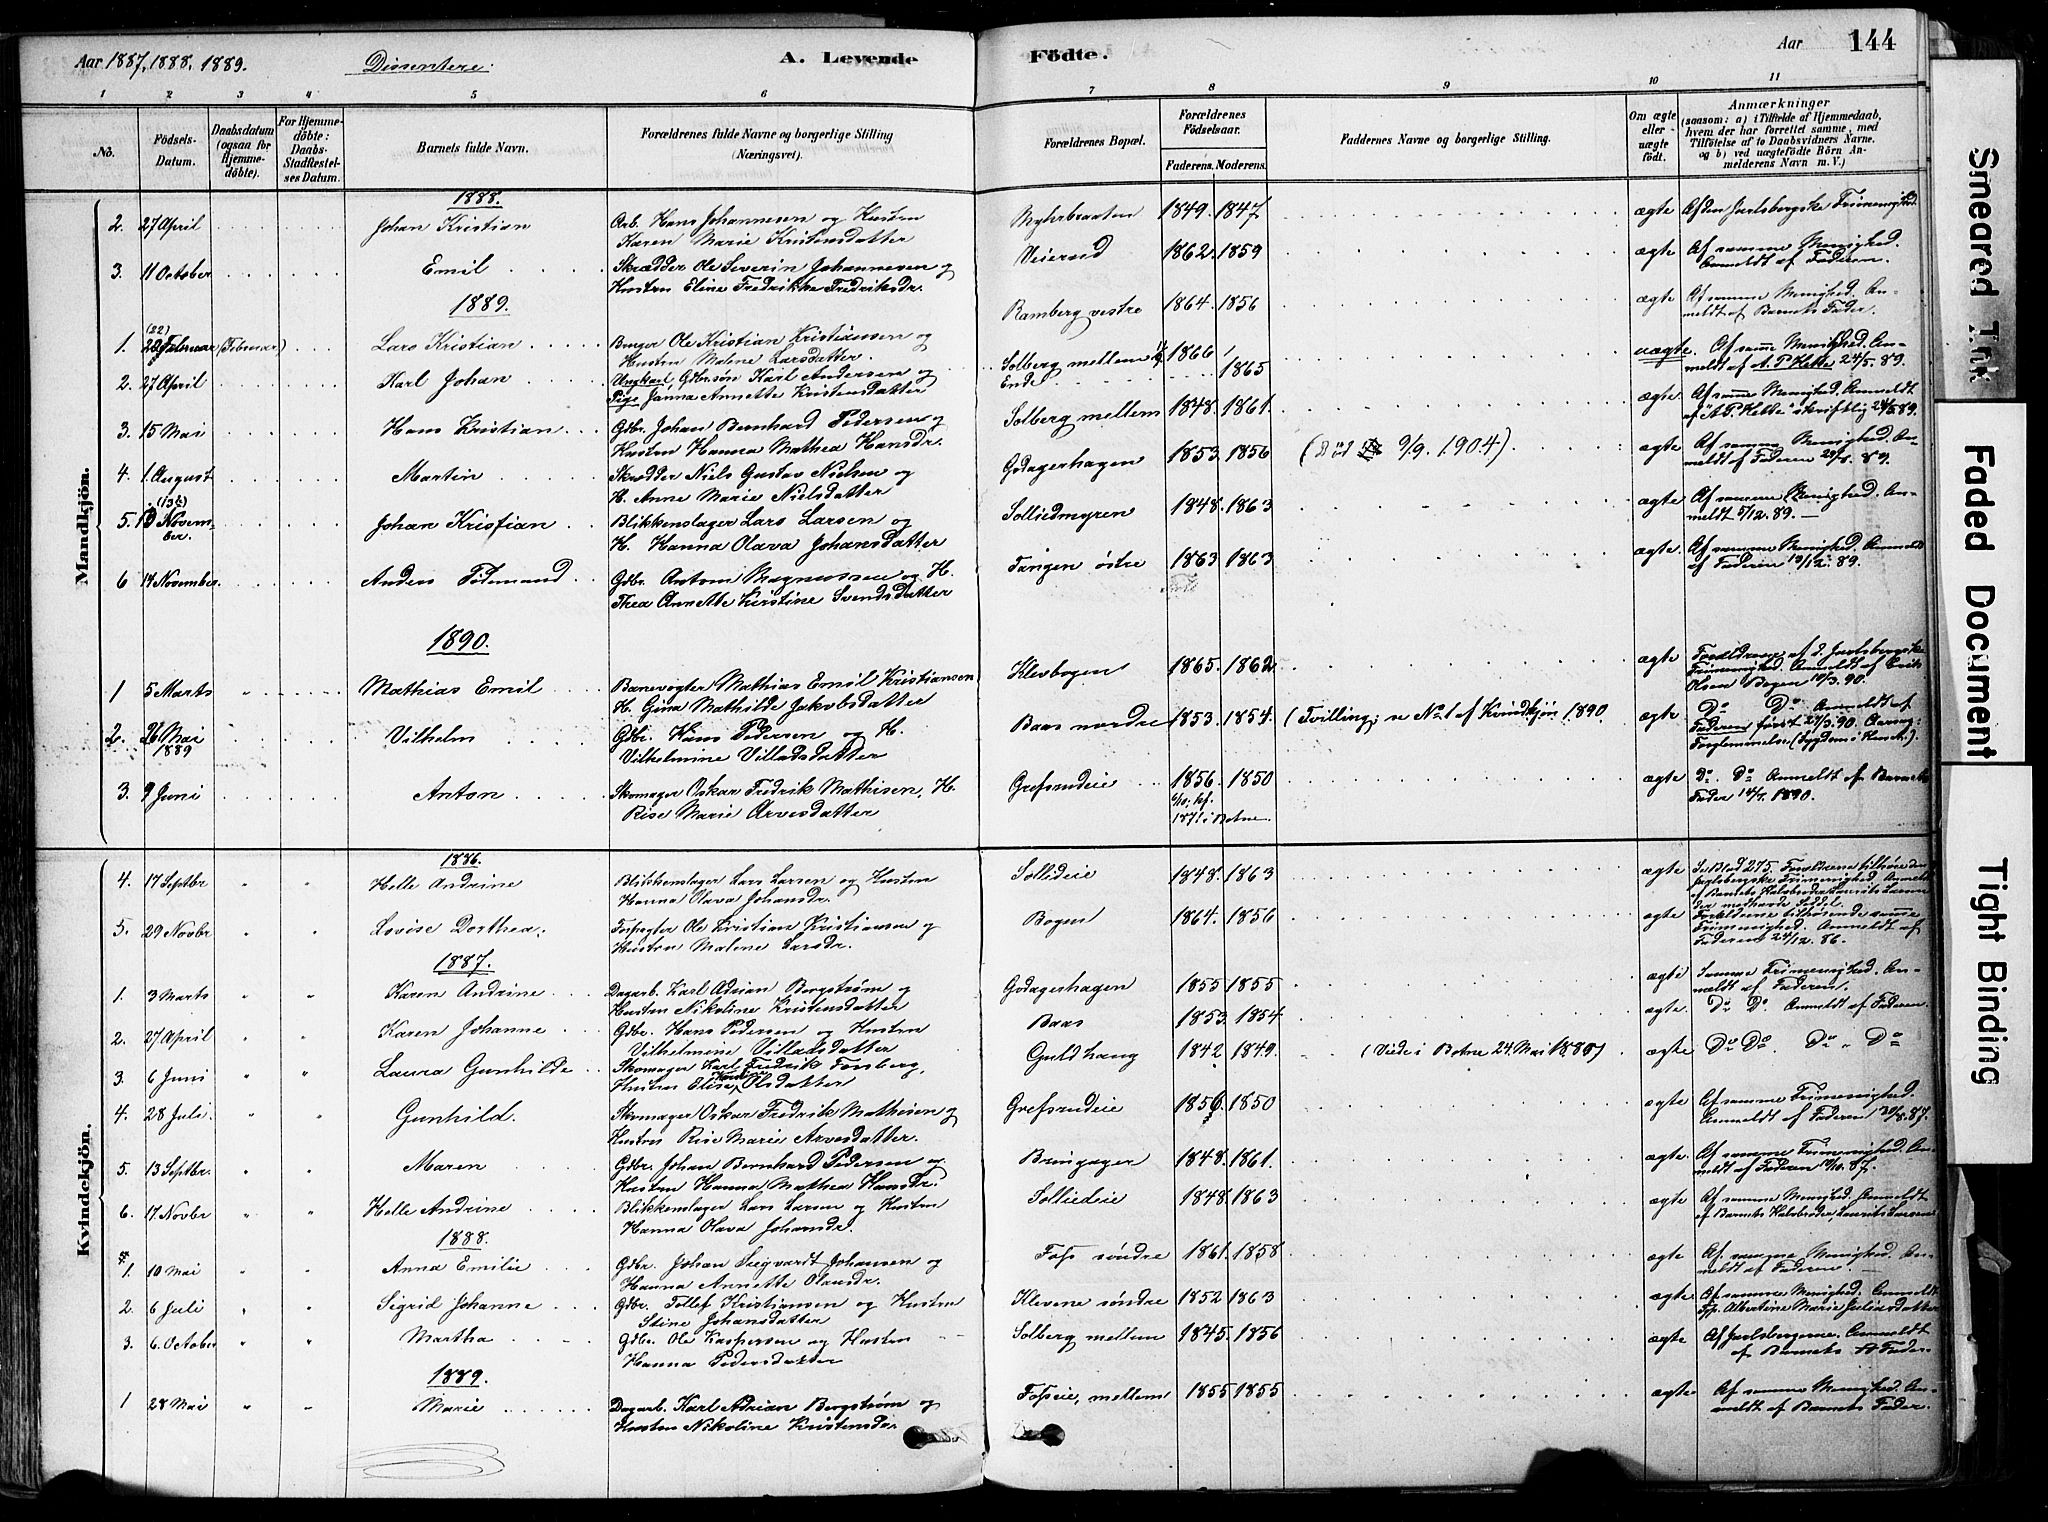 Aar 1887, 1888, 1889. Dissentere: A. Levende Födte. Aar 144
1 2 3 4 5 6 7 8 9 10 11
No. Födsels-Datum. Daabsdatum (ogsaa for Hjemmedöbte). For Hjemmedöbte: Daabs-Stadfestelses Datum. Barnets fulde Navn. Forældrenes fulde Navne og borgerlige Stilling (Næringsvei). Forældrenes Bopæl. Forældrenes Födselsaar. Faderens. Moderens. Faddernes Navne og borgerlige Stilling. Om ægte eller uægte födt. Anmærkninger (saasom: a) i Tilfælde af Hjemmedaab, hvem der har forrettet samme, med Tilföielse af to Daabsvidners Navne. og b) ved uægtefödte Börn Anmelderens Navn m. V.)
Mandkjön.
1888.
2. 27 April Johan Kristian Arb. Hans Johannesen og Hustru Karen Marie Kristensdatter Myhrbraaten 1849. 1847 ægte Af den Jarlsbergske Frimenighed
3. 11 October Emil Skrædder Ole Severin Johannesen og Hustru Eline Fredrikke Fredriksdr. Veierud 1862. 1859 ægte Af samme Menighed. Anmeldt af Faderen.
1889.
1. 22 Februar (Februar) Lars Kristian Bruger Ole Kristian Kristiansen og Hustru Malene Larsdatter. Ramberg vestre 1864. 1856 ægte Af samme Menighed. Anmeldt af Barnets Fader.
2. 27 April Karl Johan Ungkarl, Gdbr.søn Karl Andersen og Pige Janna Annette Kristensdatter Solberg mellem Ende 1866 1865 uægte. Af samme Menighed. Anmeldt af A. P. Helte 24/5. 89.
3. 15 Mai Hans Kristian Gdbr. Johan Bernhard Pedersen og Hustru Hanna Mathea Hansdr. Solberg mellem 1848. 1861. ægte Af samme Menighed. Anmeldt af "A. P. Helte" skriftlig 24/5 89.
4. 1. August Martin Skrædder Niels Gustav Nielsen og H. Anne Marie Nielsdatter Godagerhagen 1853 1856 (Död 9/9. 1904) ægte Af samme Menighed. Anmeldt af Faderen 89.
5. 13 November. Johan Kristian Blikkenslager Lars Larsen og H. Hanna Olava Johansdatter Solliedmyren 1848. 1863 ægte. Af samme Menighed. Anmeldt 5/12. 89.
6 14 November. Anders Tidemand Gdbr. Antom Magnussen og H. Thea Annette Kirstine Svendsdatter Tangen østre 1863 1863 ægte. Af samme Menighed. Anmeldt af Faderen 12. 89.
1890.
1 5 Marts " Mathias Emil Banevogter Mathias Emil Kristiansen H. Gina Mathilde Jakobsdatter Klevbogen 1865. 1862 ægte Forældrene af d. Jarlsbergske Frimenighed. Anmeldt af Erik Olsen Bogen 10/3. 90.
2. 26 Mai 1889 Vilhelm Gdbr. Hans Pedersen og H. Vilhelmine Villadsdatter Baas nordre 1853. 1854. (Tvilling; se No 1 af Kvindkjøn 1890 ægte Do Do Anmeldt af Faderen først 24/3. 90. Forglemmelse (Sygdom i Huset).
3. 9 Juni Anton Skomager Oskar Fredrik Mathisen, H. Rise Marie Arvesdatter Grefsrudeie 1856. 1850 1871 i Botne. ægte Do Do Anmeldt af Barnets Fader 14/7. 1890.
Kvindekjön.
1886.
4. 17 Septbr " " Helle Andrine Blikkenslager Lars Larsen og Hustru Hanna Olava Johansdr. Sollideie 1848. 1863 ægte Se Blad 275. Forældrene tilhøre den Jarlsbergske Frimenighed. Anmeldt af Barnets Halvbroder Laurits Larsen der medhavde Seddel.
5. 29 Novbr " " Lovise Dorthea. Ole Kristian Kristiansen og Hustru Malene Larsdr. Bogen 1864. 1856 ægte Forældrene tilhørende samme Frimenighed. Anmeldt af Faderen 24/12. 86.
1887.
1. 3 Marts " " Karen Andrine Dagarb. Karl Adrian Bergstrøm og Hustru Nikoline Kristensdatter Godagerhagen 1855 1855 ægte Samme Frimenighed. Anmeldt af Faderen.
2. 27 April " " Karen Johanne Gdbr. Hans Pedersen og Hustru Vilhelmine Villadsdatter Baas 1853. 1854 ægte Do Do. Anmeldt af Faderen.
3. 6 Juni " " Laura Gunhilde Skomager Karl Fredrik Forsberg, Hustru Elise Olsdatter Guldhaug 1842 1849. (Viede i Botne 24. Mai 1880) ægte Do Do. Do " Do
4. 28 Juli. " " Gunhild. Skomager Oskar Fredrik Mathisen og Hustru Rise Marie Arvesdatter. Grefsrudeie 1856. 1850 ægte Af samme Frimenighed. Anmeldt af Faderen 20/8. 87.
5. 13 Septbr. " " Maren Gdbr. Johan Bernhard Pedersen og Hustru Hanna Mathea Hansdr. Bringager 1848. 1861. ægte Af samme Frimenighed. Anmeldt af Faderen 10. 87.
6. 17. Novbr " " Helle Andrine Blikkenslager Lars Larsen og Hustru Hanna Olava Johansdr. Solliedeie 1848. 1863 ægte Af samme Menighed. Anmeldt af Barnets Halvbroder, Laurits Larsen
1888.
1. 10 Mai " " Anna Emilie Gdbr. Johan Sigvardt Johansen og Hanna Annette Olausdr. Foss søndre 1861. 1858 ægte Af samme Menighed. Anmeldt af Faderen.
2. 6 Juli " " Sigrid Johanne Gdbr. Tollef Kristiansen og Hustru Stine Johansdatter Klevene søndre 1852 1863 ægte Af samme Menighed. Anmeldt Albertine Marie Juliusdatter
3. 6. October " " Martha Gdbr. Ole Kaspersen og Hustru Hanna Pedersdatter Solberg mellem 1845. 1856 ægte Af Jarlsbergerne. Anmeldt af Barnets Fader.
1889.
1 28 Mai " " Marie Dagarb. Karl Adrian Bergstrøm og Hustru Nikoline Kristensdr. Fosseie, mellem 1855 1855 ægte Af samme Menighed. Anmeldt af Barnets Fader.
Smeared Ink
Faded Document
Tight Binding